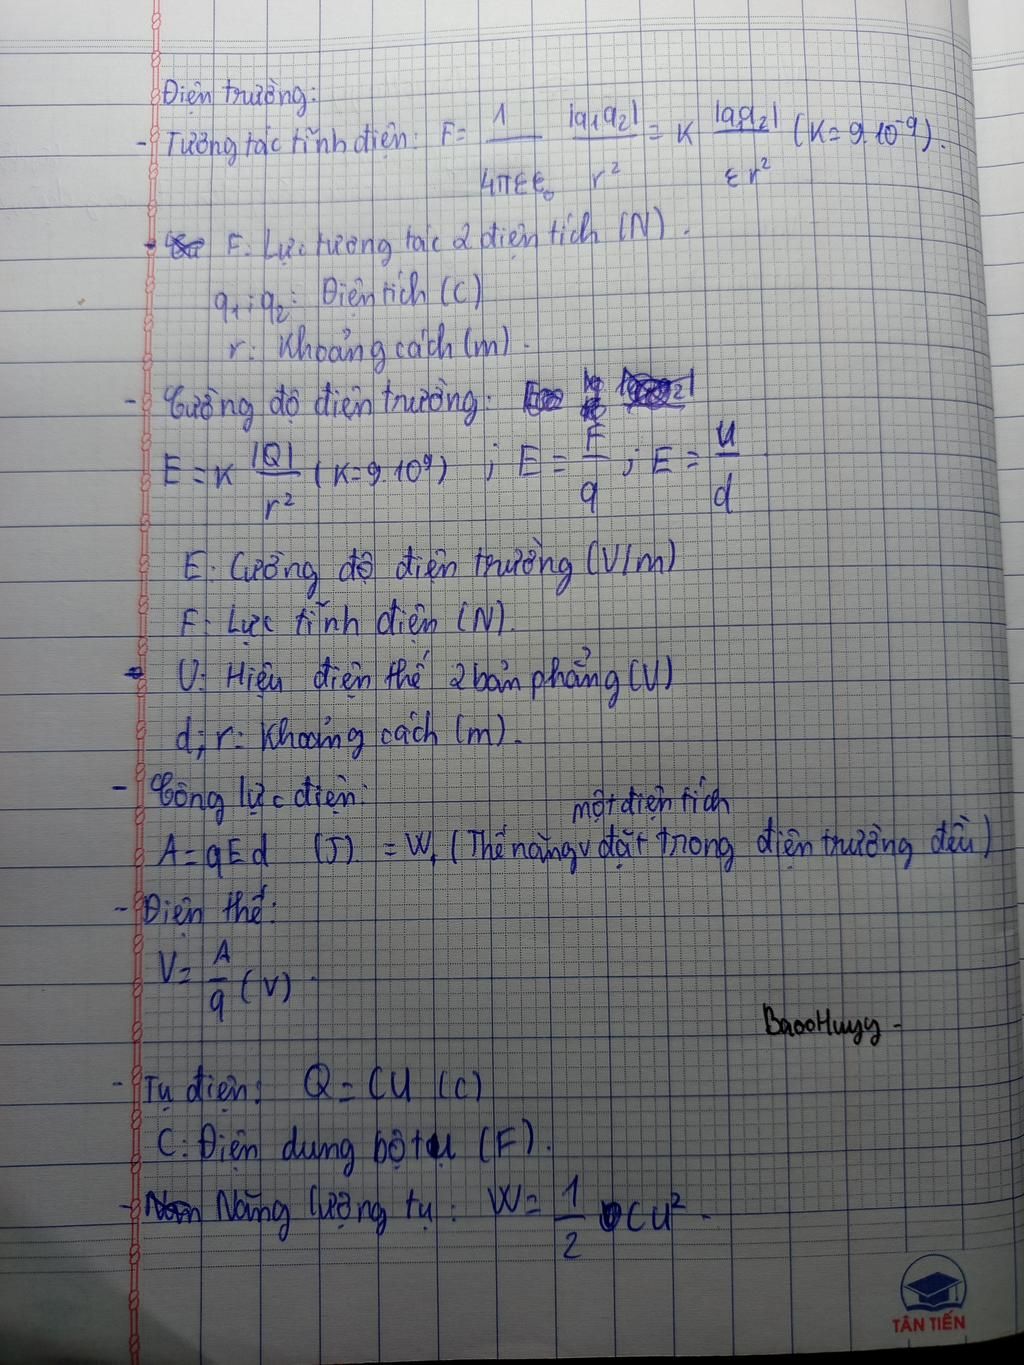 Điện trường:
- Tương tác tĩnh điện: F = 1/4πεε₀ |q₁q₂|/r² = K |q₁q₂|/εr² (K = 9.10⁻⁹).
F: Lực tương tác 2 điện tích (N).
q₁; q₂: Điện tích (C)
r: Khoảng cách (m).
- Cường độ điện trường:
E = K |Q|/r² (K = 9.10⁹) ; E = F/q ; E = U/d
E: Cường độ điện trường (V/m)
F: Lực tĩnh điện (N).
U: Hiệu điện thế 2 bản phẳng (V)
d; r: Khoảng cách (m).
- Công lực điện:
một điện tích
A = qEd (J) = Wₜ (Thế năng v đặt trong điện trường đều)
- Điện thế:
V = A/q (V).
BaooHuyy -
- Tụ điện: Q = CU (C)
C: Điện dung bộ tụ (F).
- Năng lượng tụ: W = 1/2 CU².
TÂN TIẾN